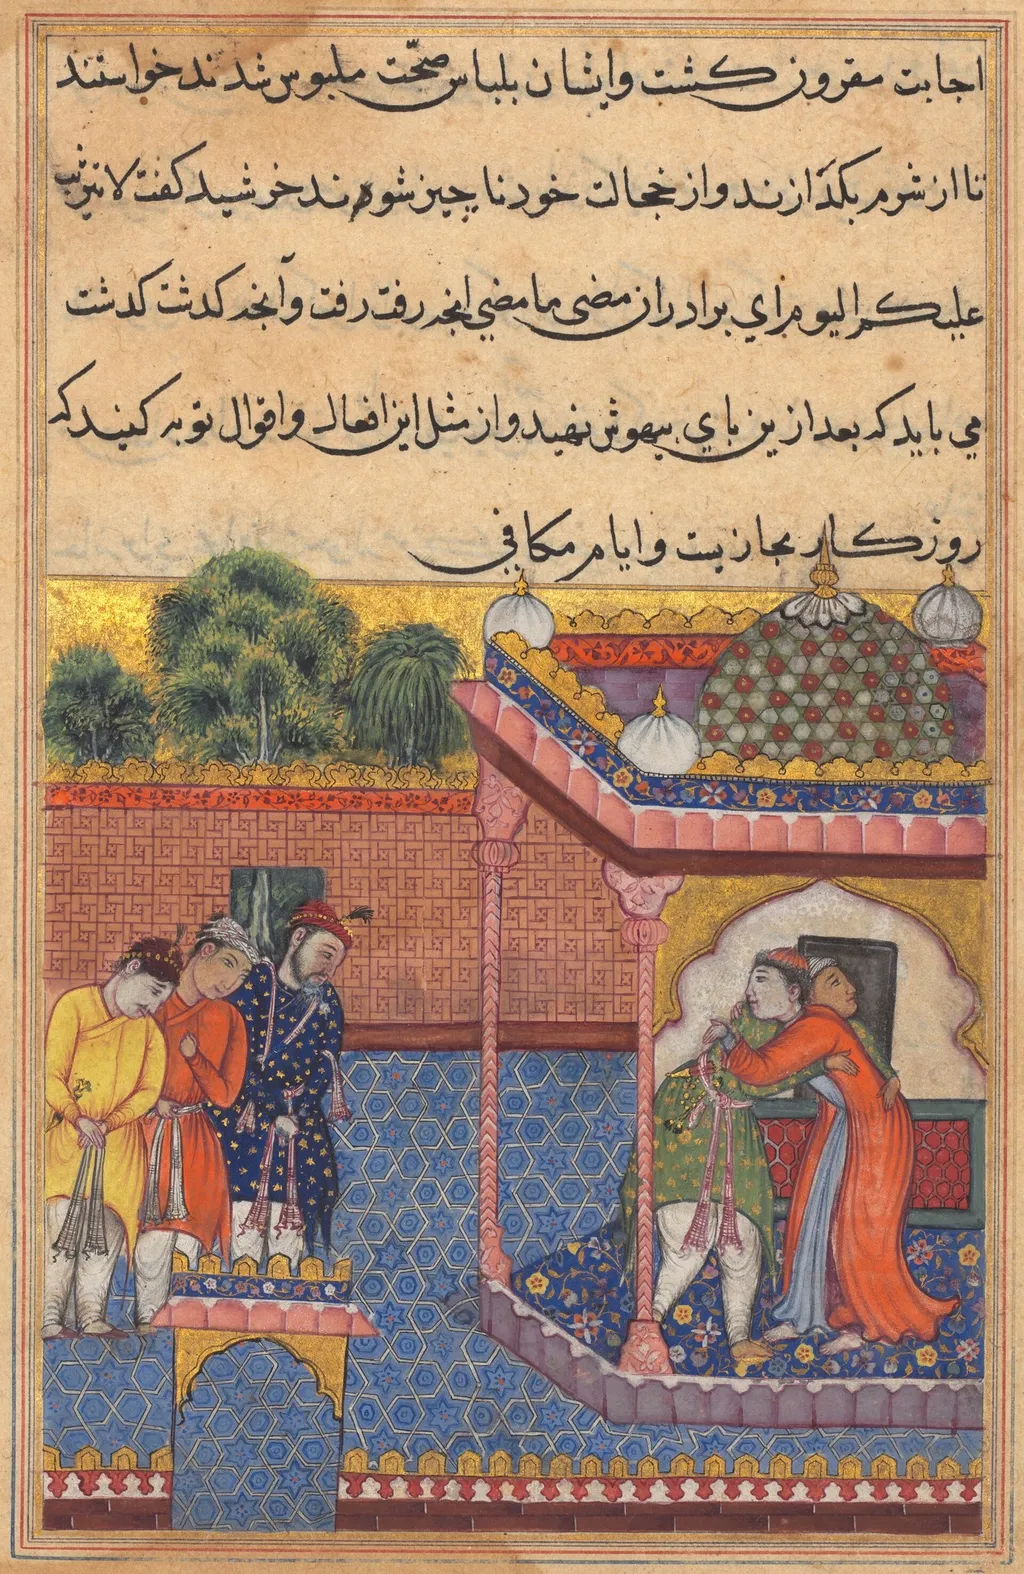 اجابت مقرون کشت وایشان بلباس صحّت ملبوس شدند خواستند
تا از شرم بکدازند واز خجالت خود ناچیز شوند خرشید کفت لا تثریب
علیکم الیوم ای برادران مضی ما مضی انجه رفت رفت وآنجه کدشت کدشت
می باید که بعد ازین بای بیهوش نهید واز مثل این افعال واقوال توبه کنید که
روزکار مجازیست وایام مکافی